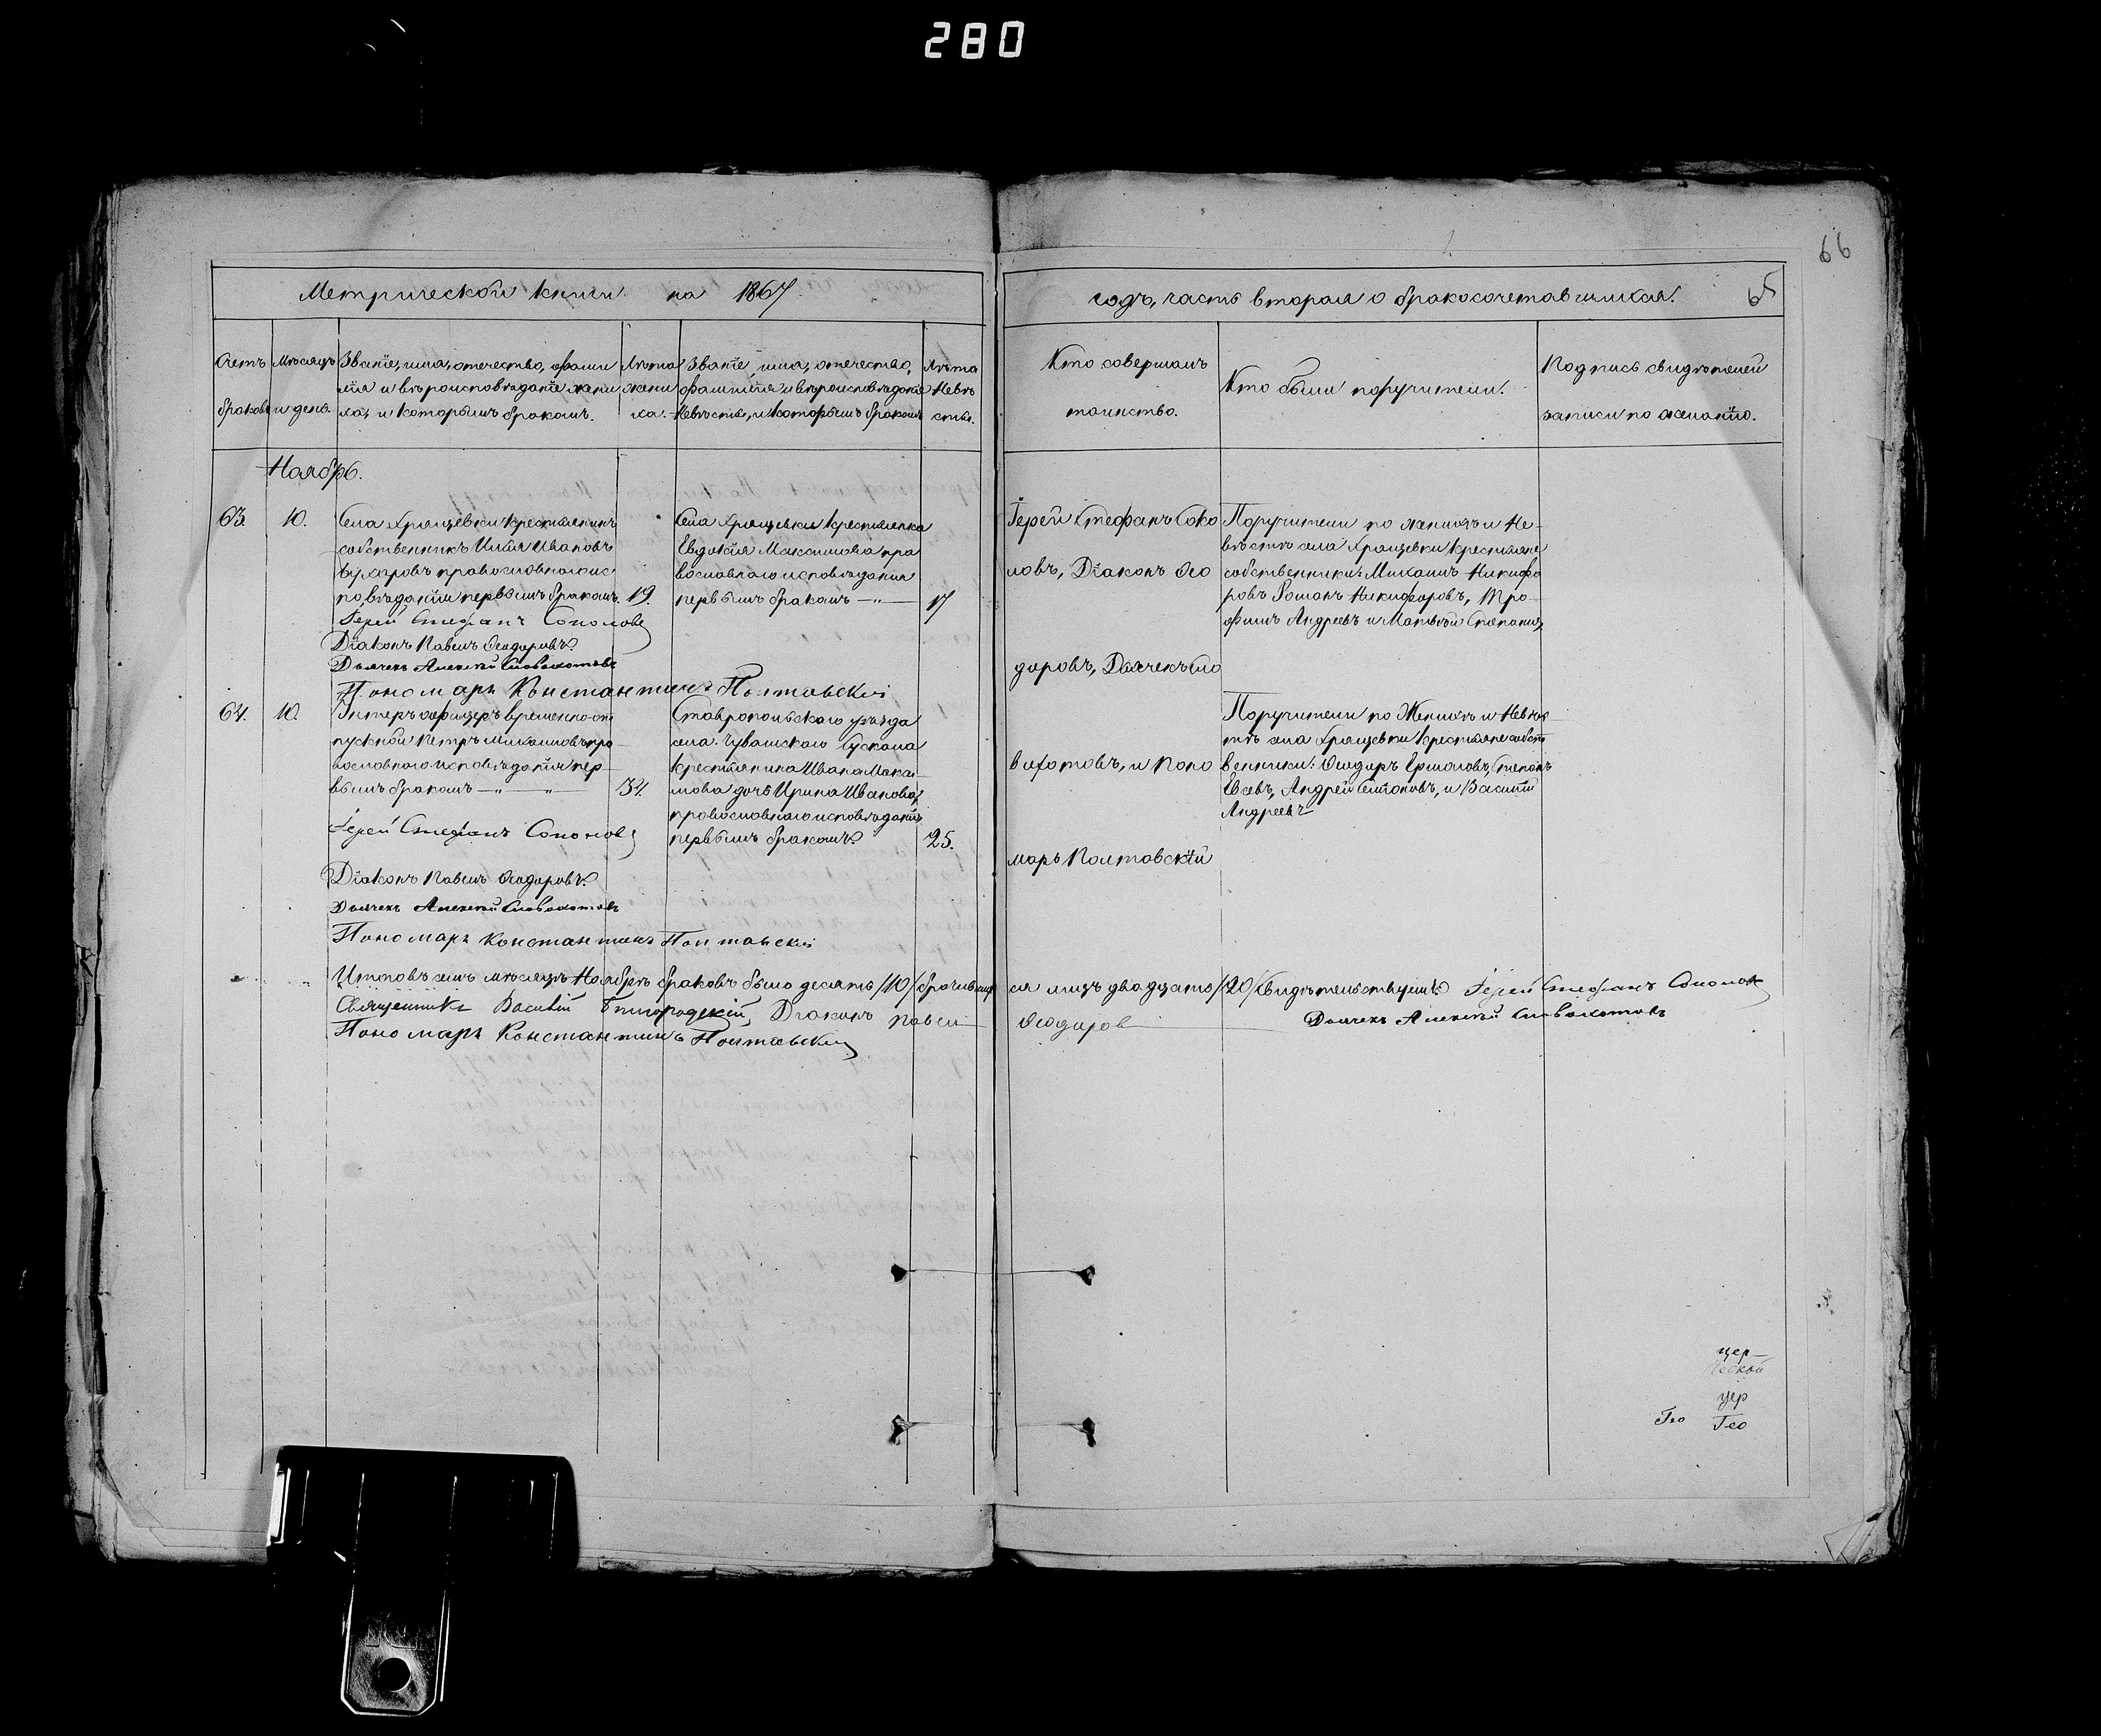 280
66
65
Метрической книги на 1867.
годъ, часть вторая о бракосочетавшихся.
Счетъ браковъ
Мѣсяцъ и день
Званіе, имя, отечество, фами
лія и вѣроисповѣданіе жени
ха, и которымъ бракомъ.
Лѣта
жени
ха.
Званіе, имя, отечество,
фамилія и вѣроисповѣданіе
невѣсты, и которымъ бракомъ
Лѣта
Невѣ
сты.
Кто совершалъ
таинство.
Кто были поручители.
Подпись свидѣтелей
записи по желанію.
Ноябрь.
63. 10.
Села Хрящевки крестьянинъ
собственникъ Илья Ивановъ
православнаго ис
повѣданія первымъ бракомъ. 19.
Іерей Стефанъ Соколовъ
Діаконъ Павелъ Ѳеодоровъ.
Дьячекъ Алексѣй Словохотовъ
Пономарь Константинъ Полтавскій
Села Хрящевки крестьянка
Евдокія Максимова пра
вославнаго исповѣданія
первымъ бракомъ —"— 17
Іерей Стефанъ Соко
ловъ, Діаконъ Ѳео
доровъ, Дьячекъ Сло
вохотовъ, и Поно
марь Полтавскій
Поручители по женихѣ и Не-
вѣстѣ села Хрящевки крестьяне
собственники: Михаилъ Никифо
ровъ Романъ Никифоровъ, Тро-
фимъ Андреевъ и Матвѣй Степановъ
64. 10.
Унтеръ офицеръ временно-от
пускной Петръ Михаиловъ пра-
вославнаго исповѣданія пер-
вымъ бракомъ —"—"— 34.
Іерей Стефанъ Соколовъ
Діаконъ Павелъ Ѳеодоровъ.
Дьячекъ Алексѣй Словохотовъ
Пономарь Константинъ Полтавскій
Ставропольскаго уѣзда
села Чувашскаго Сускана
крестьянина Ивана Макси-
мова дочь Ирина Иванова,
православнаго исповѣданія
первымъ бракомъ. 25.
Поручители по Женихѣ и Невѣс-
тѣ села Хрящевки крестьяне собст
венники: Ѳеодоръ Ермоловъ, Степанъ
Евсевъ, Андрей Антоновъ, и Василій
Андреевъ
Итого въ семъ мѣсяцѣ Ноябрѣ браковъ было десять /10/ брачивших
ся лицъ двадцать /20/ Свидѣтельствуемъ: Іерей Стефанъ Соколовъ
Священникъ Василій Бѣлгородскій, Діаконъ Павелъ
Ѳеодоровъ
Дьячекъ Алексѣй Словохотовъ
Пономарь Константинъ Полтавскій
цер—
цер
Гео Гео